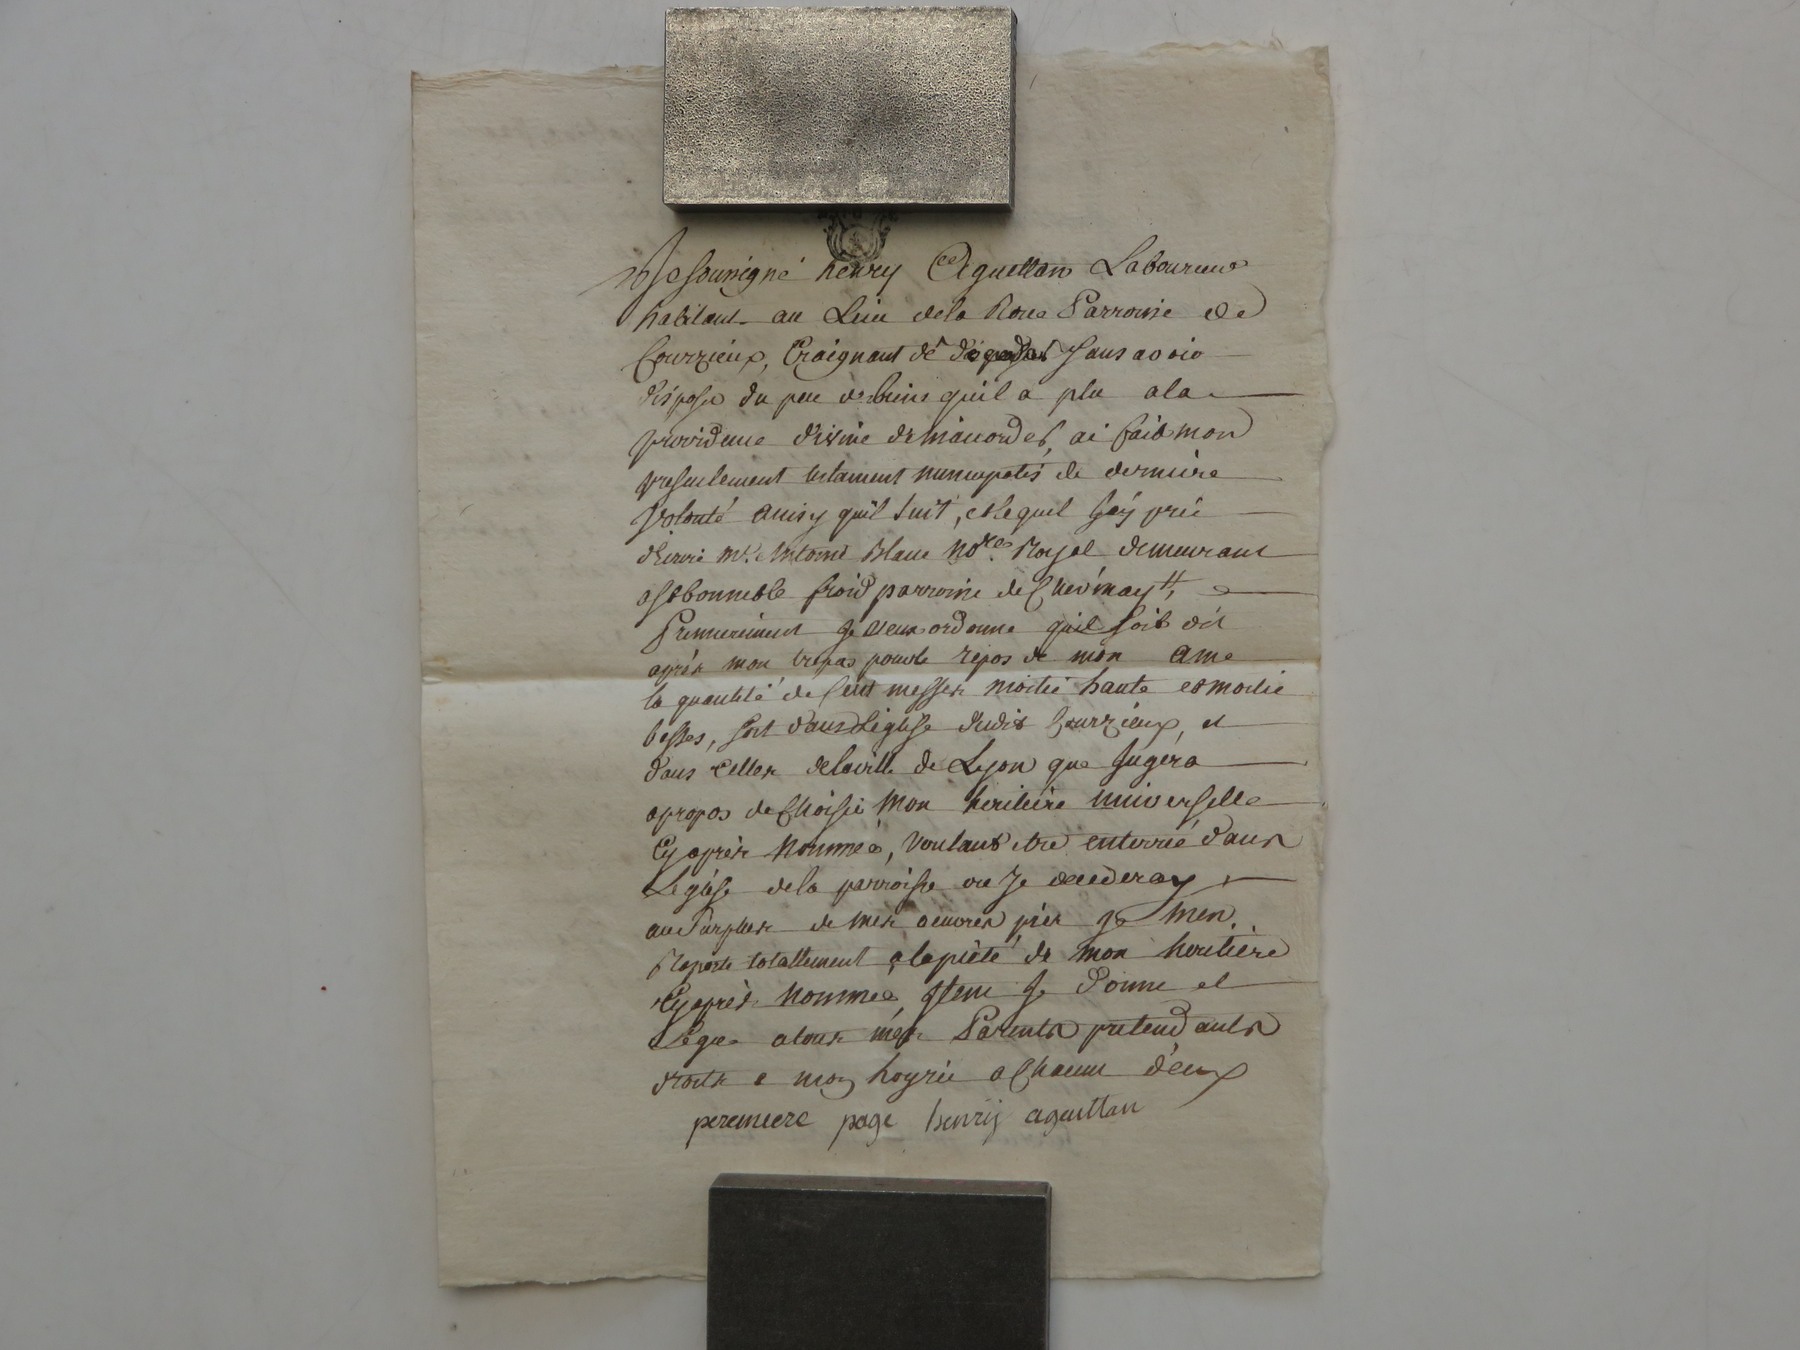 Je soussigné henry Aguettan Laboureur
habitant au Lieu dela Roue Parroisse de
Courzieux, Craignant de Sans avoir
disposé du peu de biens quil a plu ala
providence divine de maccorder, ai fait mon
presentement testament nuncupatif de derniere
volonté ainsy quil suit, et lequel Jáy prié
décrire mr. Antoine Blanc Nore. Royal demeurant
a St bonnet le froid parroisse de Chevinay,
Premierement Je veux ordonne quil soit dit
après mon trepas pour le repos de mon ame
la quantité de Cent messes moitié haute et moitié
basses, soit dans Léglise dudit Courzieux, et
dans celles delaville de Lyon que Jugéra
apropos de Choisir Mon heritière universelle
Cyaprès Nommée, voulant etre enterré dans
Leglise dela parroisse ou Je decederay
au Surplus de mes oeuvres pies Je Men
Raporte totallement ala piété de mon heritière
Cyaprès Nommée, Item Je Donne et
Legue atous mes Parents pretendants
droits a mon hoyrie a Chacun d'eux
peremiere page henrij aguettan